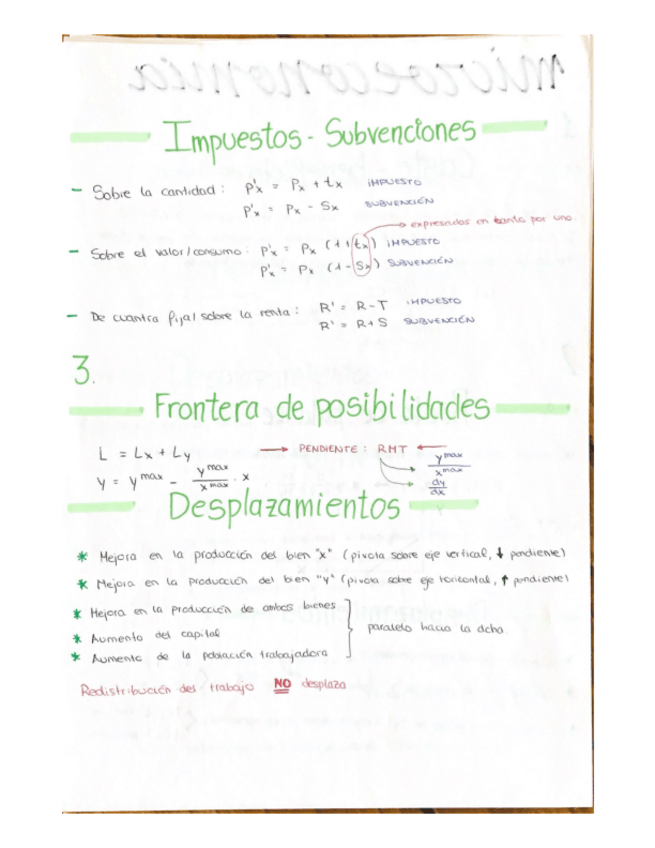 microeconomía
Impuestos - Subvenciones
- Sobre la cantidad: P'x = Px + tx IMPUESTO
P'x = Px - Sx SUBVENCIÓN
→ expresados en tanto por uno.
- Sobre el valor/consumo: P'x = Px (1+tx) IMPUESTO
P'x = Px (1-Sx) SUBVENCIÓN
- De cuantía fija/sobre la renta: R' = R-T IMPUESTO
R' = R+S SUBVENCIÓN
3.
Frontera de posibilidades
L = Lx + Ly → PENDIENTE: RMT ←
Y = Y max - Y max / X max · X
y max / x max
dy / dx
Desplazamientos
* Mejora en la producción del bien "x" (pivota sobre eje vertical, ↓ pendiente)
* Mejora en la producción del bien "y" (pivota sobre eje horizontal, ↑ pendiente)
* Mejora en la producción de ambos bienes
* Aumento del capital
paralelo hacia la dcha.
* Aumento de la población trabajadora
Redistribución del trabajo NO desplaza